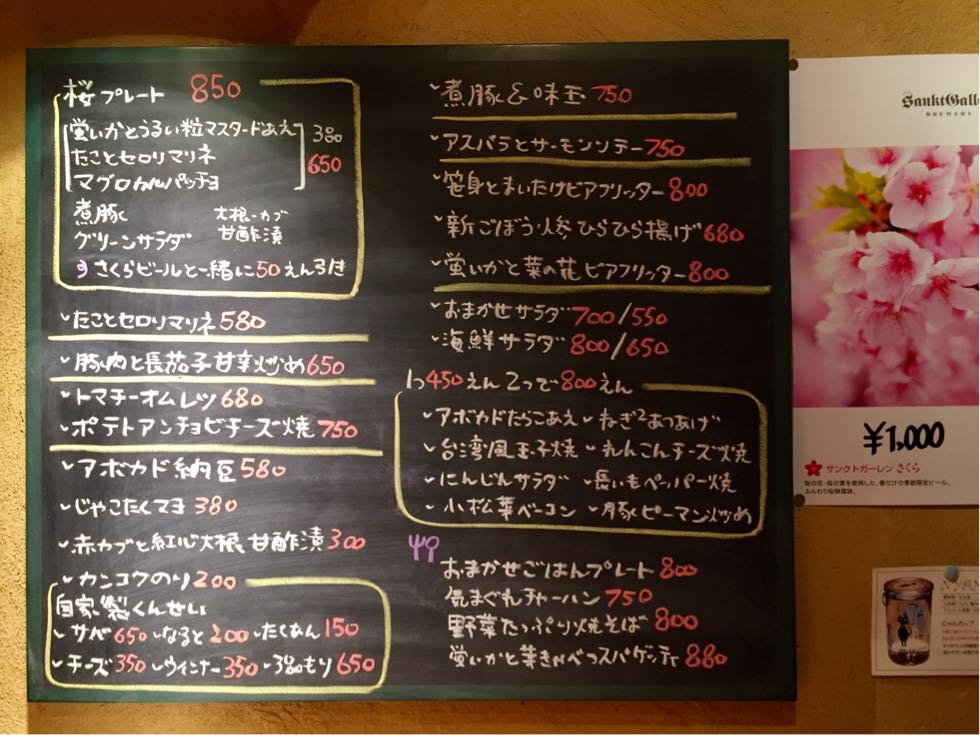 桜プレート 850
蛍いかとうるい粒マスタードあえ 3品
たことセロリマリネ 650
マグロカルパッチョ
煮豚 大根・カブ
グリーンサラダ 甘酢漬
さくらビールと一緒に50えん引き
たことセロリマリネ 580
豚肉と長茄子甘辛炒め 650
トマチーオムレツ 680
ポテトアンチョビチーズ焼 750
アボカド納豆 580
じゃこたくマヨ 380
赤カブと紅心大根 甘酢漬 300
カンコウのり 200
自家製くんせい
サバ 650 なると 200 たくあん 150
チーズ 350 ウィンナー 350 3品もり 650
煮豚&味玉 750
アスパラとサーモンソテー 750
笹身とまいたけビアフリッター 800
新ごぼう・人参ひらひら揚げ 680
蛍いかと菜の花ビアフリッター 800
おまかせサラダ 700/550
海鮮サラダ 800/650
1つ450えん 2つで800えん
アボカドたらこあえ ねぎ2あつあげ
台湾風玉子焼 れんこんチーズ焼
にんじんサラダ 長いもペッパー焼
小松菜ベーコン 豚ピーマン炒め
おまかせごはんプレート 800
気まぐれチャーハン 750
野菜たっぷり焼そば 800
蛍いかと春きゃべつスパゲッティ 880
SanktGalle
BREWERY
¥1,000
サンクトガーレン さくら
桜の花・桜の葉を使用した、春だけの季節限定ビール。
ふんわり桜餅風味。
にゃんカップ